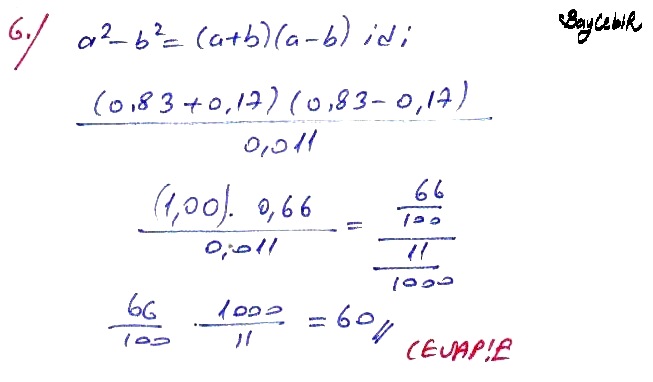 6./ a²-b² = (a+b)(a-b) idi BayCebiR
(0,83+0,17)(0,83-0,17) / 0,011
(1,00). 0,66 / 0,011 = 66/100 / 11/1000
66/100 . 1000/11 = 60//
CEVAP:E